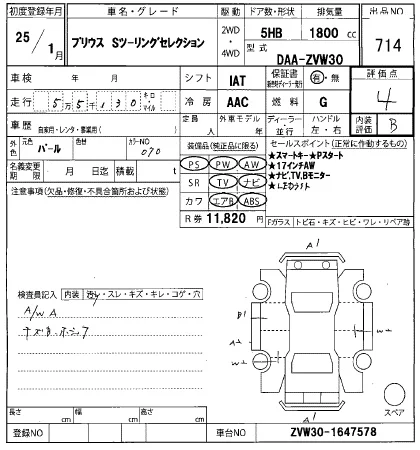 初度登録年月 車名・グレード 駆動 ドア数・形状 排気量 出品NO
25年 1月 プリウス Sツーリングセレクション 2WD ・ 4WD 5HB 1800 cc 714
型式 DAA-ZVW30
車検 年 月 シフト IAT 保証書 有・無 評価点
走行 5万5千130 キロ・マイル 冷房 AAC 燃料 G 4
車歴 自家用・レンタ・事業用( ) 定員 人 外車モデル 年 ディーラー・並行 ハンドル 左・右 内装評価 B
外色 元色 パール 色替 カラーNO 070 装備品(純正品に限る) セールスポイント(正常に作動するもの)
名義変更期限 月 日迄 積載 t PS PW AW ★スマートキー★Pスタート
注意事項(欠品・修復・不具合箇所および状態) SR TV ナビ ★17インチAW
カワ エアB ABS ★ナビ,TV,Bモニター
R券 11,820 円 Fガラス トビ石・キズ・ヒビ・ワレ・リペア跡
検査員記入 内装 汚れ・スレ・キズ・キレ・コゲ・穴
A/W A
A1
B1
A1
スペア
長さ cm 幅 cm 高さ cm
登録NO 車台NO ZVW30-1647578